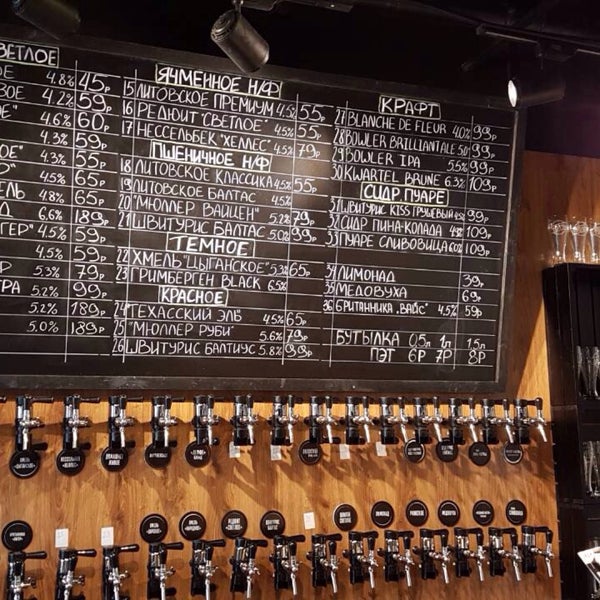 СВЕТЛОЕ
ОЕ 4.8% 45Р
ВОЕ 4.2% 59Р
Е" 4.6% 60Р
4.3% 59Р
ОЕ" 4.3% 55Р
Р" 4.5% 65Р
ЕЛЬ 4.8% 65Р
Д 6.6% 189Р
ГЕР" 4.5% 59Р
4.5% 59Р
Р 5.3% 79Р
ТРА 5.2% 99Р
5.2% 189Р
5.0% 189Р
ЯЧМЕННОЕ Н/Ф
15 ЛИТОВСКОЕ ПРЕМИУМ 4.5% 55Р
16 РЕДЮИТ "СВЕТЛОЕ" 4.5% 55Р
17 НЕССЕЛЬБЕК "ХЕЛЛЕС" 4.5% 79Р
ПШЕНИЧНОЕ Н/Ф
18 ЛИТОВСКОЕ КЛАССИКА 4.5% 55Р
19 ЛИТОВСКОЕ БАЛТАС 4.5%
20 "МЮЛЛЕР ВАЙЦЕН" 5.2% 79Р
21 ШВИТУРИС БАЛТАС 5.0% 99Р
ТЕМНОЕ
22 ХМЕЛЬ "ЦЫГАНСКОЕ" 5.3% 65Р
23 ГРИМБЕРГЕН BLACK 6.5%
КРАСНОЕ
24 ТЕХАССКИЙ ЭЛЬ 4.5% 65Р
25 "МЮЛЛЕР РУБИ" 5.6% 79Р
26 ШВИТУРИС БАЛТИУС 5.8% 99Р
КРАФТ
27 BLANCHE DE FLEUR 4.0% 99Р
28 BOWLER BRILLIANT ALE 5.0% 99Р
29 BOWLER IPA 5.5% 99Р
30 KWARTEL BRUNE 6.5% 109Р
СИДР ПУАРЕ
31 ШВИТУРИС KISS ГРУШЕВЫЙ 4.5% 99Р
32 СИДР ПИНА-КОЛАДА 4.9% 109Р
33 ПУАРЕ СЛИВОВИЦА 6.0% 109Р
34 ЛИМОНАД 39Р
35 МЕДОВУХА 69Р
36 БРИТАННИКА "ВАЙС" 4.5% 59Р
БУТЫЛКА 0,5л 1л 1,5л
ПЭТ 6Р 7Р 8Р